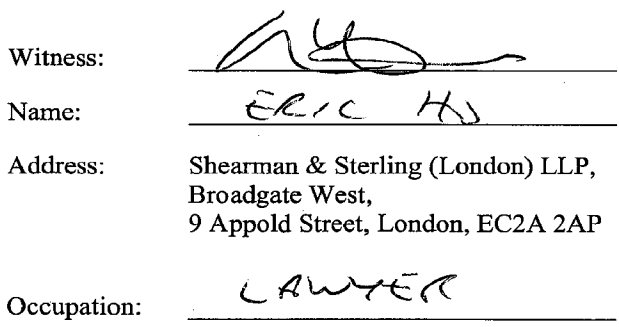 Witness:
Name: ERIC HO
Address: Shearman & Sterling (London) LLP,
Broadgate West,
9 Appold Street, London, EC2A 2AP
Occupation: LAWYER